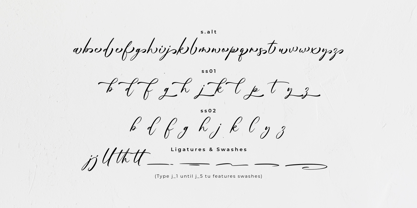 s.alt
abcdefghijklmnopqrsstuvwxyzs
ss01
b d f g h j k l p t y z
ss02
b d f g h j k l y z
Ligatures & Swashes
jj ll tt th tt
(Type j_1 until j_5 tu features swashes)